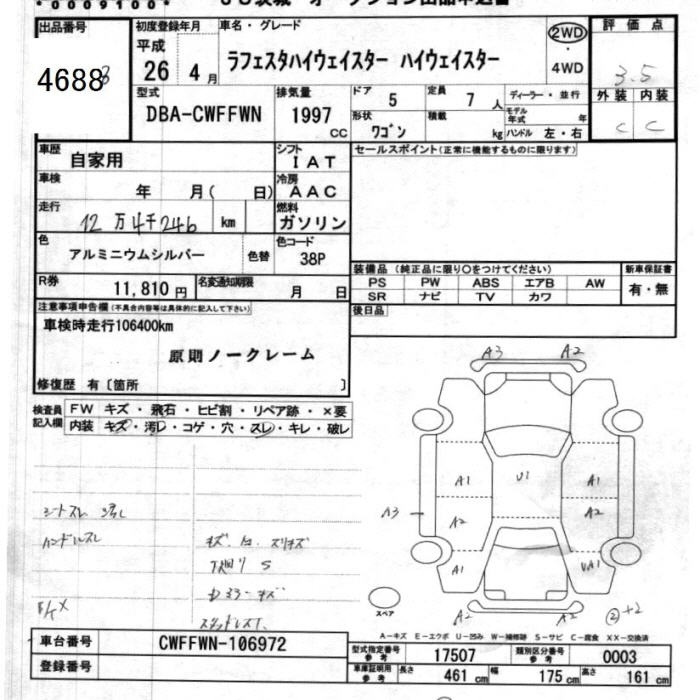 0009100
出品番号 初度登録年月 車名・グレード 2WD 評価点
4688 平成 26 4月 ラフェスタハイウェイスター ハイウェイスター ・ 4WD 3.5
型式 DBA-CWFFWN 排気量 1997 CC ドア 5 定員 7 人 ディーラー・並行 外装 内装
形状 ワゴン 積載 kg モデル年式 年 ハンドル 左・右 C C
車歴 自家用 シフト IAT セールスポイント(正常に機能するものに限ります)
車検 年 月( 日) 冷房 AAC
走行 12万4千246 km 燃料 ガソリン
色 アルミニウムシルバー 色替 色コード 38P
装備品(純正品に限り○をつけてください) 新車保証書
PS PW ABS エアB AW 有・無
SR ナビ TV カワ
R券 11,810円 名変通知期限 月 日
後日品
注意事項申告欄(不具合内容等は具体的に記入して下さい)
車検時走行106400km
原則ノークレーム
修復歴 有〔箇所 〕
検査員記入欄 FW キズ・飛石・ヒビ割・リペア跡・×要
内装 キズ・汚レ・コゲ・穴・スレ・キレ・破レ
A3 A2
A1 U1 A1
A3 A2 A2
A1 UA1
A2 A2 ② +2
シートスレ
ハンドルスレ
下廻り S
スペア
A-キズ E-エクボ U-凹み W-補修跡 S-サビ C-腐食 XX-交換済
車台番号 CWFFWN-106972 型式指定番号 参考 17507 類別区分番号 参考 0003
登録番号 車庫証明用 参考 長さ 461 cm 幅 175 cm 高さ 161 cm